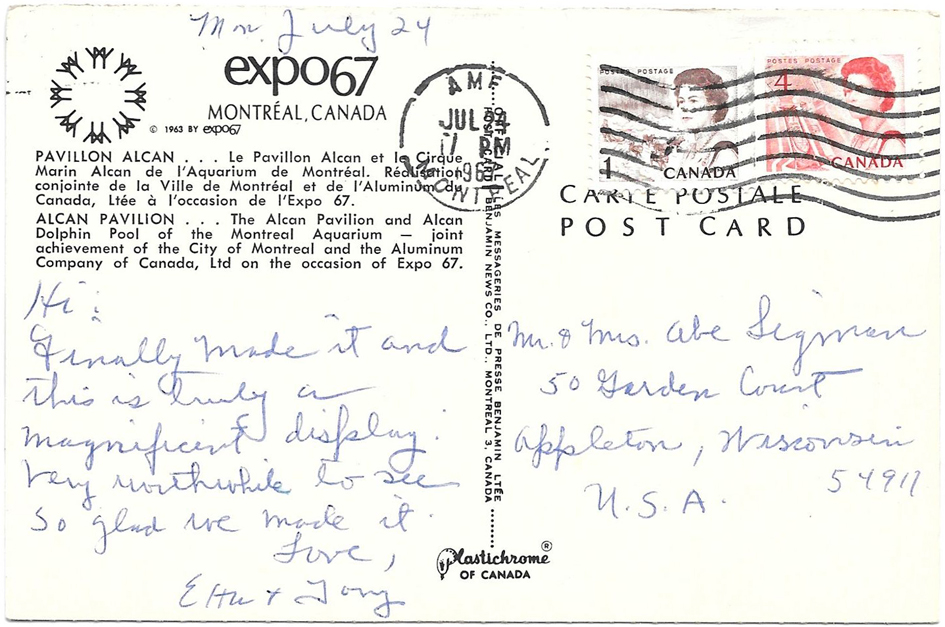 Mon. July 24
expo67
MONTRÉAL, CANADA
© 1963 BY expo67
PAVILLON ALCAN . . . Le Pavillon Alcan et le Cirque
Marin Alcan de l'Aquarium de Montréal. Réalisation
conjointe de la Ville de Montréal et de l'Aluminum du
Canada, Ltée à l'occasion de l'Expo 67.
ALCAN PAVILION . . . The Alcan Pavilion and Alcan
Dolphin Pool of the Montreal Aquarium — joint
achievement of the City of Montreal and the Aluminum
Company of Canada, Ltd on the occasion of Expo 67.
Hi:
Finally made it and
this is truly a
magnificent display.
Very worthwhile to see
so glad we made it.
Love,
& Tony
LES MESSAGERIES DE PRESSE BENJAMIN LTÉE
BENJAMIN NEWS CO., LTD., MONTREAL 3, CANADA
Plastichrome®
OF CANADA
AME
JUL 24
17 PM
196
MONTREAL
POSTES POSTAGE
1
CANADA
POSTES POSTAGE
4
CANADA
CARTE POSTALE
POST CARD
Mr. & Mrs. Abe Sigman
50 Garden Court
Appleton, Wisconsin
54911
U.S.A.